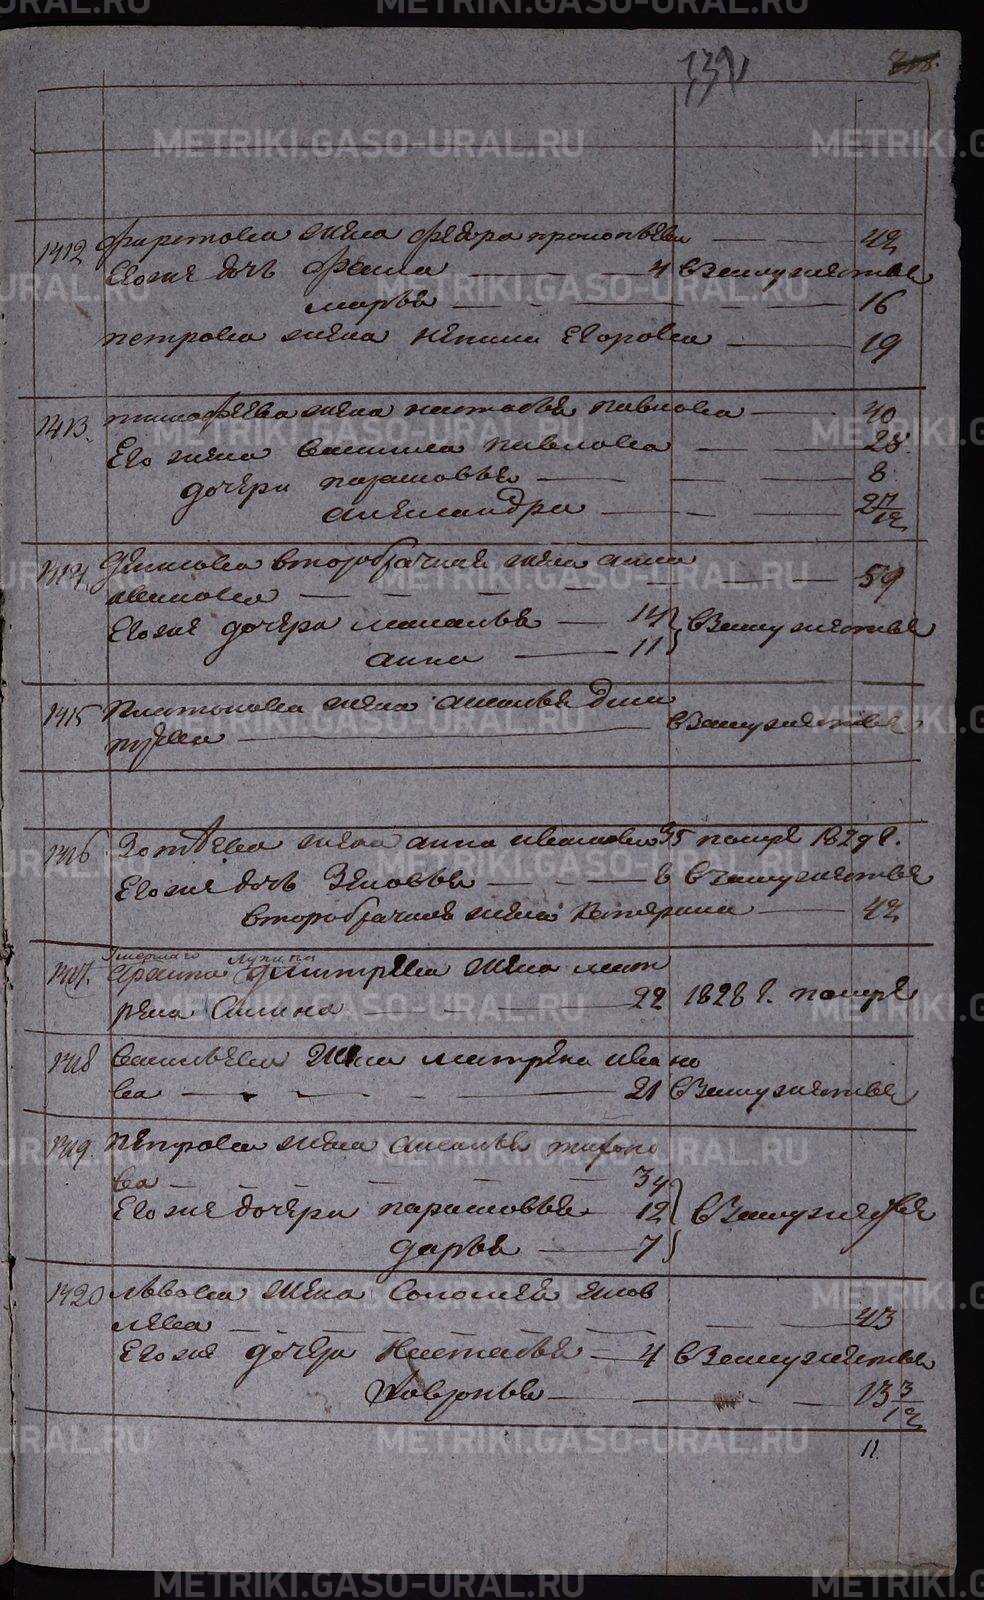 139
318.
1412 Фирстова жена Федора прокопьева 42
Его же дочь Фекла 4 в Замужестве
марья 16
петрова жена Егорова 19
1413. тимофеева жена настасья павлова 40
Его жена Василиса павлова 28.
дочери парасковья 8
александра 2 7/12
1414. Денисова второбрачная жена анна
ивановна 59
Его же дочери маланья 14 в Замужестве
анна 11
1415 Платонова жена акилина Дми
триева в Замужестве
1416 Зотеева жена анна иванова 35 помре 1829 г.
Его же дочь Зеновья 8 в Замужестве
второбрачная жена Катерина 42
1417. умершаго
Дмитриева жена мат
рена 22 1828 г. помре
1418 Васильева жена матрена ивано
ва 21 в Замужестве
1419. Петрова жена акилина
ва 34
Его же дочери парасковья 12 в Замужестве
дарья 7
1420 львова жена Соломея яков
лева 43
Его же дочери Настасья 4 в Замужестве
Хавронья 13 3/12
11.